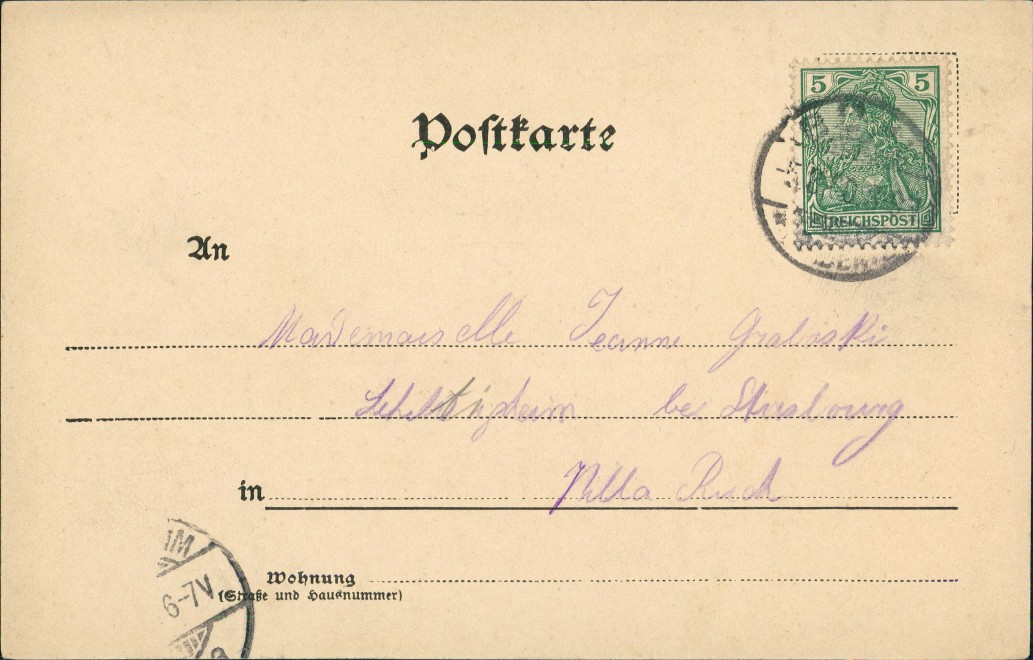 5 5
REICHSPOST
Poſtkarte
An
Mademoiselle Jeanne
bei Strasbourg
in Villa Ruch
IM
6-7V
Wohnung
(Straße und Hausnummer)